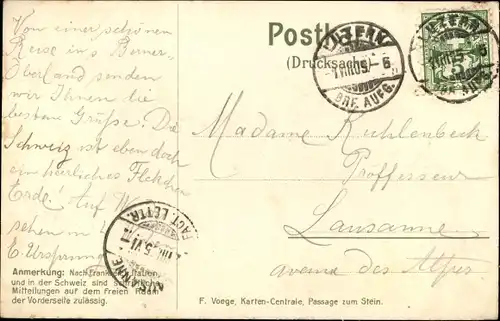 Von einer schönen
Reise ins Berner-
Oberland senden
wir Ihnen die
besten Grüße. Die
Schweiz ist eben doch
ein herrliches Fleckchen
Erde! Auf W
sehen in
E. Ursprung
Anmerkung: Nach Frankreich, Italien
und in der Schweiz sind schriftliche
Mitteilungen auf dem Freien Raum
der Vorderseite zulässig.
Postk
(Drucksache)
LUZERN
BRF. AUFG.
LUZERN
Madame Kuhlenbeck
Professeur
Lausanne
avenue des Alpes
FACT. LETTR.
F. Voege, Karten-Centrale, Passage zum Stein.